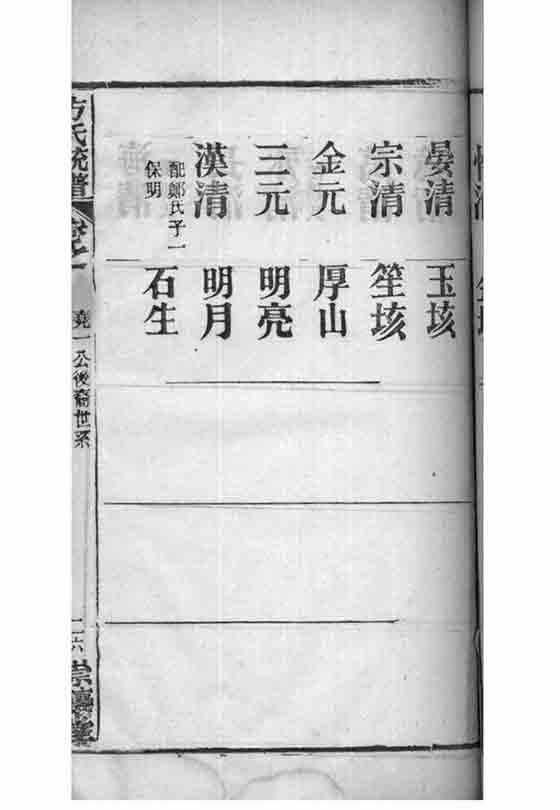 晏清
玉垓
宗清
笙垓
金元
厚山
三元
明亮
漢清
明月
配鄭氏子一
保明
石生
方氏統譜
堯一公後裔世系
二六